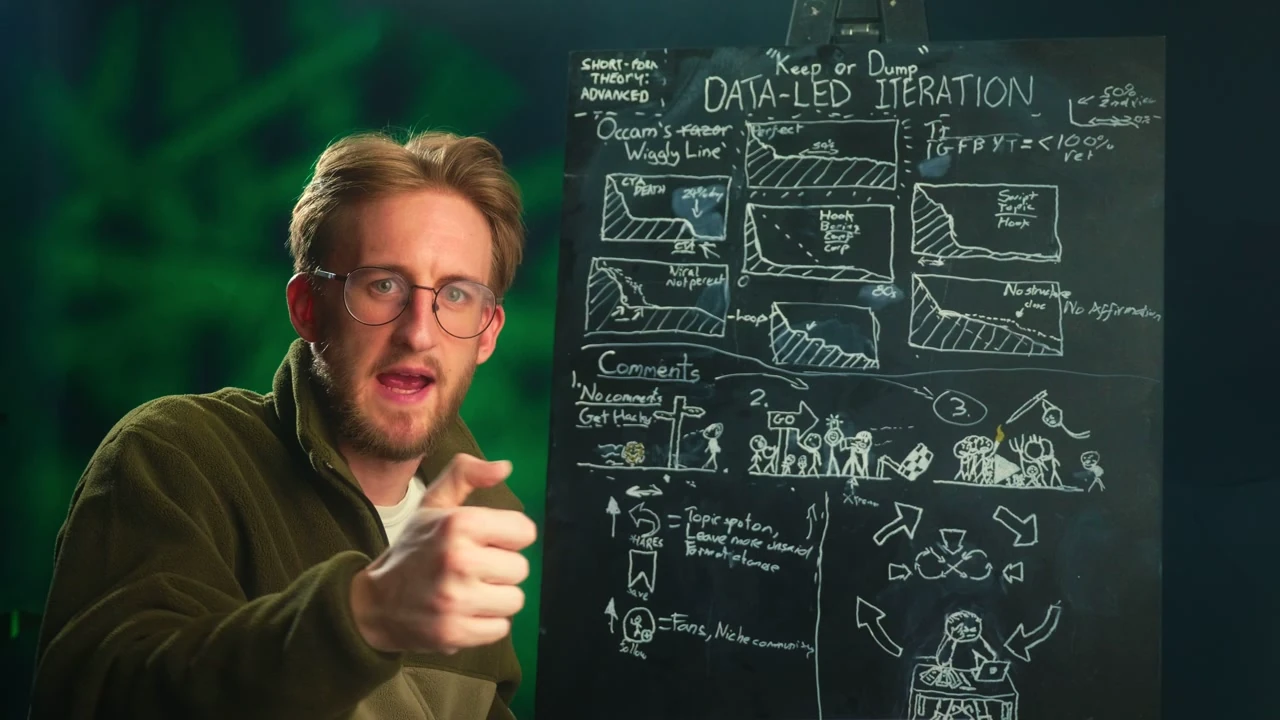 SHORT-FORM
THEORY:
ADVANCED
"Keep or Dump"
DATA-LED ITERATION
50%
Occam's razor
Wiggly Line'
Perfect
50%
IGFBYT = <100%
ret
CTA
DEATH
Hook
Boring
Script
Topic
Hook
Viral
Not perfect
Loop
0
80s
No structure
No Affirmation
Comments
1.
No comments
Get Hacky
2.
GO
3.
= Topic spot on,
Leave more unsaid
Format change
SHARES
save
= Fans, Niche community
follow